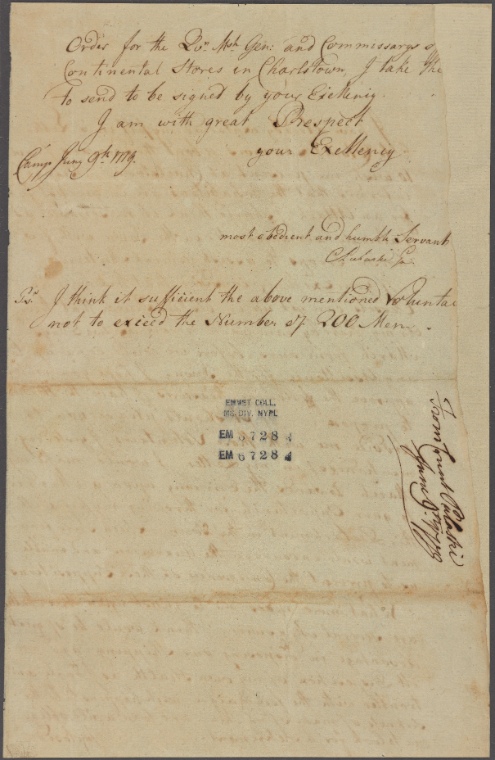 Order for the Qr. Mstr. Gen: and Commissarys of
Continental Stores in Charlstown, I take the
to send to be signed by your Exellency.
I am with great Prespect
your Exellency
Camp June 9th 1779.
most obedient and humble Servant
C Pulaski Gn.
Ps. I think it sufficient the above mentioned Voluntai
not to exceed the Number of 200 Men.
EMMET COLL.
MS. DIV. NYPL
EM 6728
EM 6728
From Count Pulaski
June 9th 1779